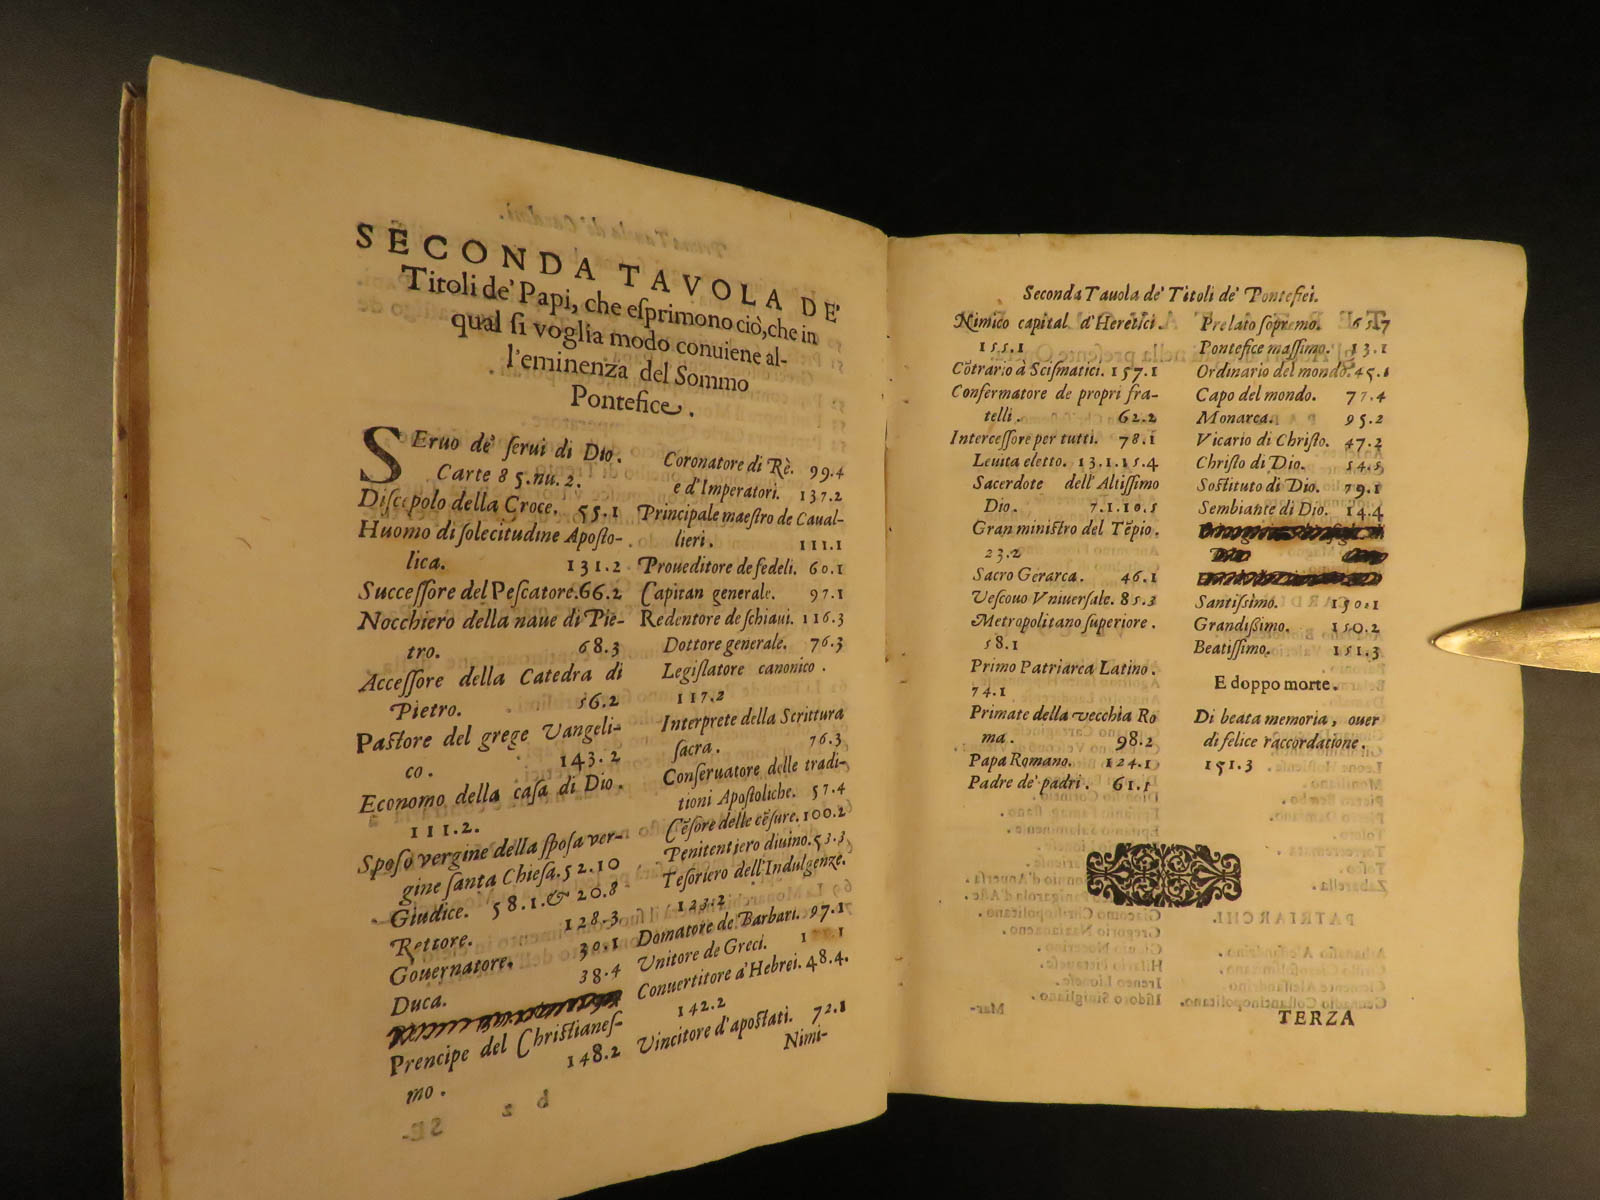 SECONDA TAVOLA DE'
Titoli de' Papi, che eſprimono ciò, che in
qual ſi voglia modo conuiene al-
l'eminenza del Sommo
Pontefice.
SEruo de' ſerui di Dio.
Carte 85. nu. 2.
Diſcepolo della Croce. 55.1
Huomo di ſolecitudine Apoſto-
lica. 131.2
Succeſſore del Peſcatore. 66.2
Nocchiero della naue di Pie-
tro. 68.3
Acceſſore della Catedra di
Pietro. 56.2
Paſtore del grege Vangeli-
co. 143.2
Economo della caſa di Dio.
111.2.
Spoſo vergine della ſpoſa ver-
gine ſanta Chieſa. 52.10
Giudice. 58.1. & 20.8
Rettore. 128.3
Gouernatore. 30.1
Duca. 38.4
Prencipe del Chriſtianeſ-
mo. 148.2
Coronatore di Rè. 99.4
e d'Imperatori. 137.2
Principale maeſtro de Caual-
lieri. 111.1
Proueditore de fedeli. 60.1
Capitan generale. 97.1
Redentore de ſchiaui. 116.3
Dottore generale. 76.3
Legiſlatore canonico.
117.2
Interprete della Scrittura
ſacra. 76.3
Conſeruatore delle tradi-
tioni Apoſtoliche. 57.4
Cēſore delle cēſure. 100.2
Penitentiero diuino. 53.3
Teſoriero dell'Indulgenze.
123.2
Domatore de' Barbari. 97.1
Vnitore de Greci.
Conuertitore d'Hebrei. 48.4.
142.2
Vincitore d'apoſtati. 72.1
Nimi-
Seconda Tauola de' Titoli de' Pontefici.
Nimico capital d'Heretici.
155.1
Cōtrario à Sciſmatici. 157.1
Confermatore de propri fra-
telli. 62.2
Interceſſore per tutti. 78.1
Leuita eletto. 13.1.15.4
Sacerdote dell'Altiſſimo
Dio. 7.1.10.5
Gran miniſtro del Tēpio.
23.2
Sacro Gerarca. 46.1
Veſcouo Vniuerſale. 85.3
Metropolitano ſuperiore.
58.1
Primo Patriarca Latino.
74.1
Primate della vecchia Ro
ma. 98.2
Papa Romano. 124.1
Padre de' padri. 61.1
Prelato ſopremo. 65.7
Pontefice maſſimo. 13.1
Ordinario del mondo. 45.1
Capo del mondo. 77.4
Monarca. 95.2
Vicario di Chriſto. 47.2
Chriſto di Dio. 54.5
Soſtituto di Dio. 79.1
Sembiante di Dio. 14.4
Santiſſimo. 150.1
Grandiſſimo. 150.2
Beatiſſimo. 151.3
E doppo morte.
Di beata memoria, ouer
di felice raccordatione.
151.3
TERZA